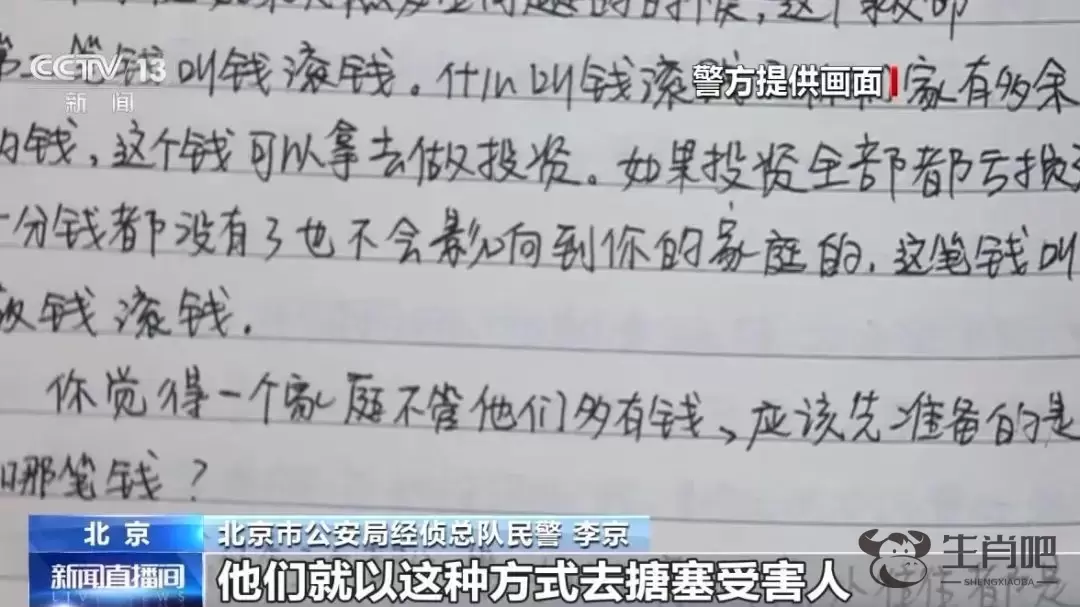 这个家又都
第二笔钱叫钱滚钱。什么叫钱滚钱 家有多余
CCTV 13
新闻
警方提供画面
的钱，这个钱可以拿去做投资。如果投资全部都亏损
一分钱都没有了也不会影响到你的家庭的，这笔钱叫
做钱滚钱.
你觉得一个家庭不管他们多有钱、应该先准备的是
哪笔钱？
北京
北京市公安局经侦总队民警 李京
新闻直播间
LIVE NEWS
他们就以这种方式去搪塞受害人
生肖吧
SHENGXIAOBA